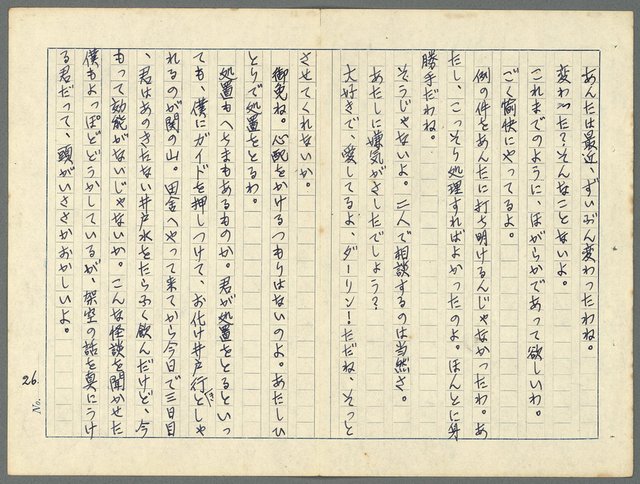 あんたは最近、ずいぶん変わったわね。
変わった？そんなことないよ。
これまでのように、ほがらかであって欲しいわ。
ごく愉快にやってるよ。
例の件をあんたに打ち明けるんじゃなかったわ。あ
たし、こっそり処理すればよかったのよ。ほんとに身
勝手だわね。
そうじゃないよ。二人で相談するのは当然さ。
あたしに嫌気がさしたでしょう？
大好きで、愛してるよ、ダーリン！ただね、そっと
させてくれないか。
御免ね。心配をかけるつもりはないのよ。あたしひ
とりで処置をとるわ。
処置もへちまもあるものか。君が処置をとるといっ
ても、僕にガイドを押しつけて、お化け井戸行（き）としゃ
れるのが関の山。田舎へやって来てから今日で三日目
、君はあのきたない井戸水をたらふく飲んだけど、今
もって効能がないじゃないか。こんな怪談を聞かせた
僕もよっぽどどうかしているが、架空の話を真にうけ
る君だって、頭がいささかおかしいよ。
26.
No.